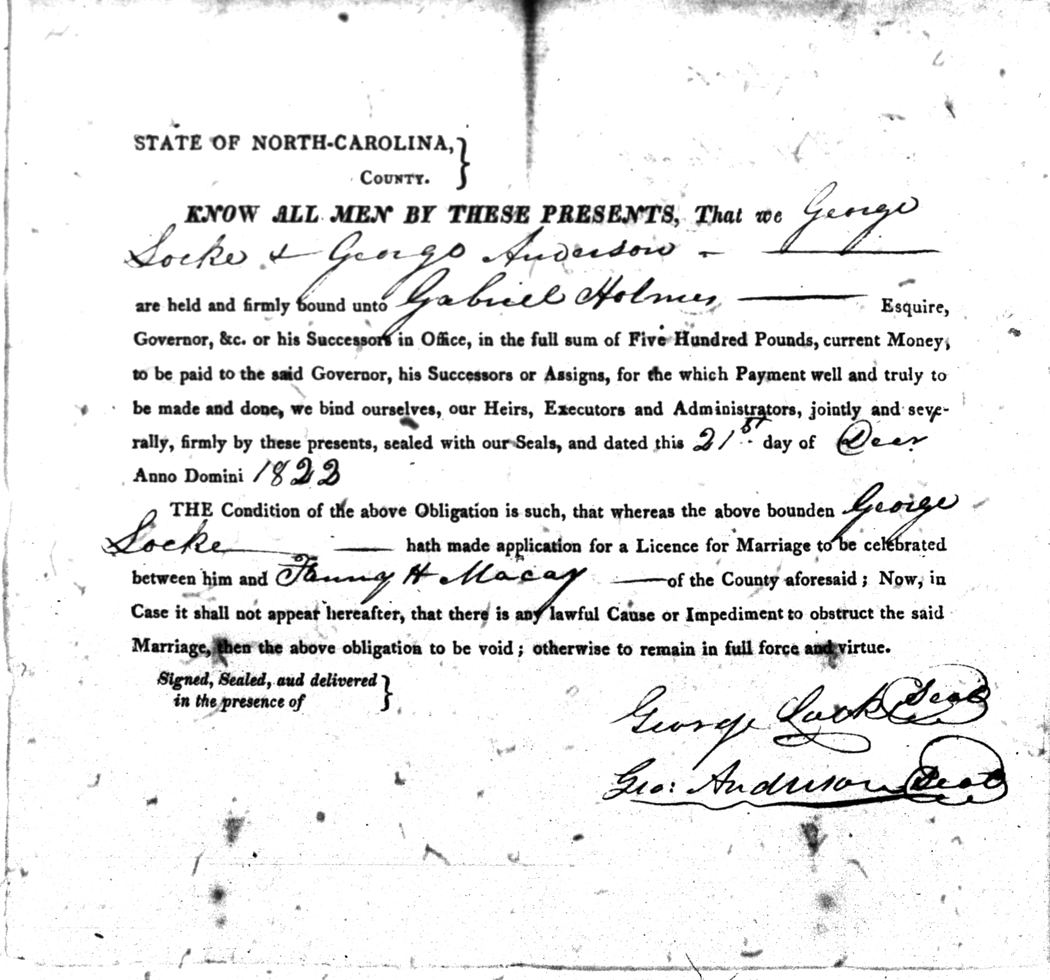 STATE OF NORTH-CAROLINA,
COUNTY.
KNOW ALL MEN BY THESE PRESENTS, That we George
Locke & George Anderson
are held and firmly bound unto Gabriel Holmes Esquire,
Governor, &c. or his Successors in Office, in the full sum of Five Hundred Pounds, current Money,
to be paid to the said Governor, his Successors or Assigns, for the which Payment well and truly to
be made and done, we bind ourselves, our Heirs, Executors and Administrators, jointly and seve-
rally, firmly by these presents, sealed with our Seals, and dated this 21st day of Decr
Anno Domini 1822
THE Condition of the above Obligation is such, that whereas the above bounden George
Locke hath made application for a Licence for Marriage to be celebrated
between him and Fanny H Macay of the County aforesaid; Now, in
Case it shall not appear hereafter, that there is any lawful Cause or Impediment to obstruct the said
Marriage, then the above obligation to be void; otherwise to remain in full force and virtue.
Signed, Sealed, and delivered
in the presence of
George Lock Seal
Geo: Anderson Seal